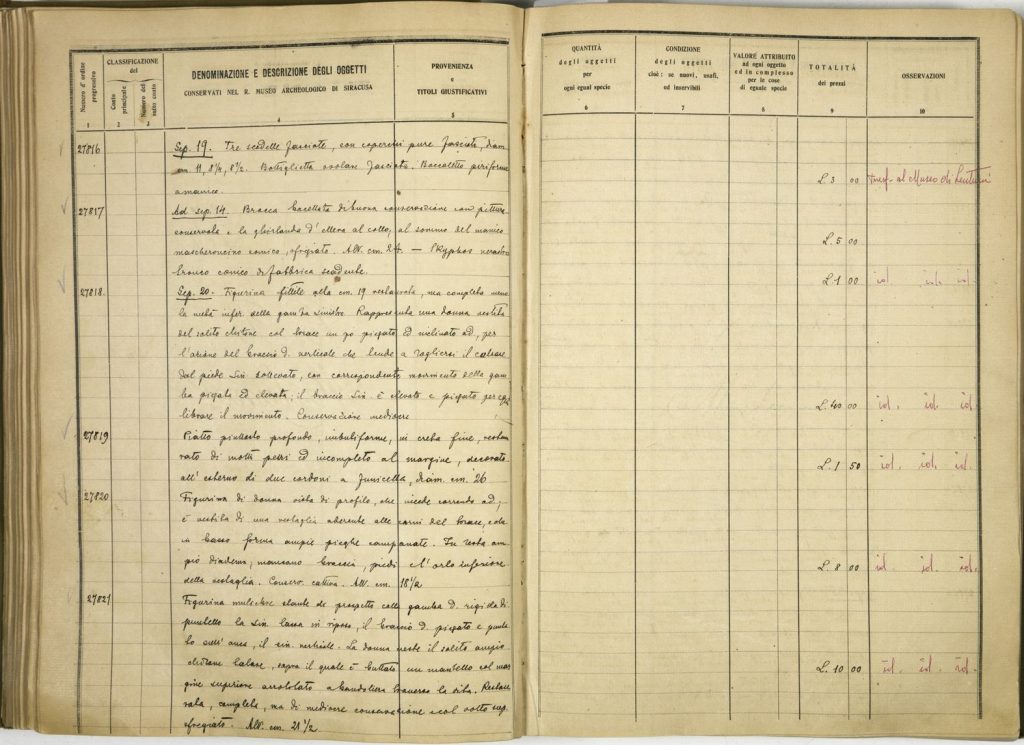 Numero d'ordine progressivo
CLASSIFICAZIONE del
Conto principale
Numero del sotto conto
DENOMINAZIONE E DESCRIZIONE DEGLI OGGETTI
CONSERVATI NEL R. MUSEO ARCHEOLOGICO DI SIRACUSA
PROVENIENZA
e
TITOLI GIUSTIFICATIVI
1 2 3 4 5
27816 Sep. 19. Tre scodelle fasciate, con coperchi pure fasciati, diam.
cm 11, 8 1/2, 8 1/2. Bottiglietta ovolare fasciata. Boccaletto piriforme
27817 Ad sep. 14. Brocca baccellata di buona conservazione con pittura
conservata e la ghirlanda d'ellera al collo, al sommo del manico
mascheroncino comico, sfregiato. Alt. cm. 24 — Skyphos nerastro
tronco conico di fabbrica scadente.
27818 Sep. 20. Figurina fittile alta cm. 19 restaurata, ma completa meno
la metà infer. della gamba sinistra. Rappresenta una donna vestita
del solito chitone col torace un po piegato ed inclinato ad, per
l'azione del braccio d. verticale che tende a togliersi il calzare
dal piede sin. sollevato, con corrispondente movimento della gam-
ba piegata ed elevata; il braccio sin. è elevato e piegato per equi
librare il movimento. Conservazione mediocre
27819 Piatto piuttosto profondo, imbutiforme, in creta fine, restau
rato di molti pezzi ed incompleto al margine, decorato
all'esterno di due cordoni a funicella, diam. cm. 26
27820 Figurina di donna vista di profilo, che incede correndo ad,
è vestita di una vestaglia aderente alle carni del torace, e da
in basso forma ampie pieghe campanate. In testa am-
pio diadema; mancano braccia, piedi e l'orlo inferiore
della vestaglia. Conserv. cattiva. Alt. cm. 18 1/2
27821 Figurina muliebre stante di prospetto colla gamba d. rigida di
puntello la sin. lassa in riposo, il braccio d. piegato e punta
to sull'anca, il sin. verticale. La donna veste il solito ampio
chitone talare, sopra il quale è buttato un mantello col mar
gine superiore arrotolato a bandoliera traverso la vita. Restau
rata, completa, ma di mediocre conservazione e col volto
sfregiato. Alt. cm. 21 1/2
QUANTITÀ
degli oggetti
per
ogni egual specie
CONDIZIONE
degli oggetti
cioè: se nuovi, usati,
od inservibili
VALORE ATTRIBUITO
ad ogni oggetto
ed in complesso
per le cose
di eguale specie
TOTALITÀ
dei prezzi
OSSERVAZIONI
6 7 8 9 10
L. 3 00 Trasf. al Museo di Lentini
L. 5 00
L. 1 00 id. id. id.
L. 40 00 id. id. id.
L. 1 50 id. id. id.
L. 8 00 id. id. id.
L. 10 00 id. id. id.